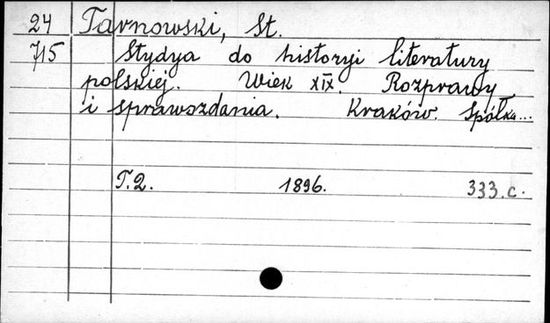 24 Tarnowski, St.
715 Stydya do historyi literatury
polskiej. Wiek XIX. Rozprawy
i sprawozdania. Kraków. Spółka...
T.2. 1896. 333.c.